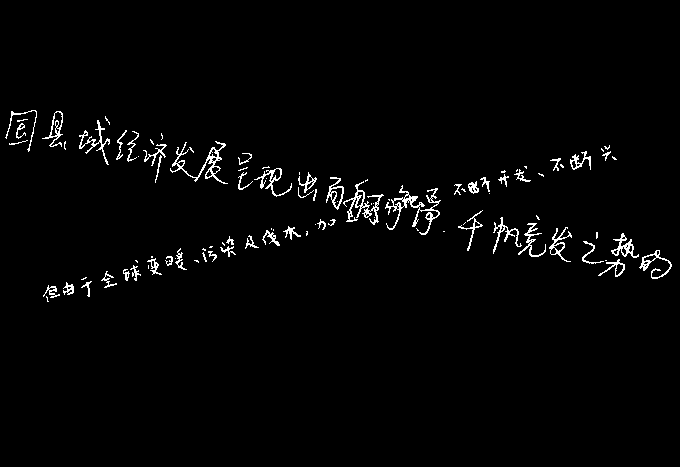 国县域经济发展呈现出百舸争流、千帆竞发之势的
但由于全球变暖、污染及伐木,加 不断开发、不断兴